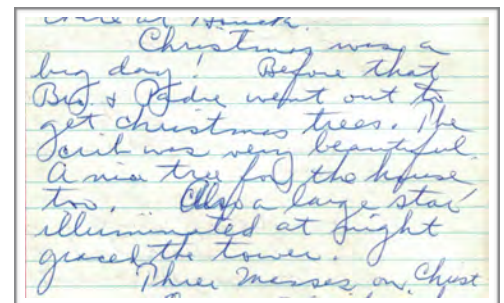 at Houck.
Christmas was a
big day! Before that
Bro & Padre went out to
get christmas trees. The
was very beautiful.
A nice tree for the house
too. Also a large star
illuminated at night
graced the tower.
Three Masses on Christ